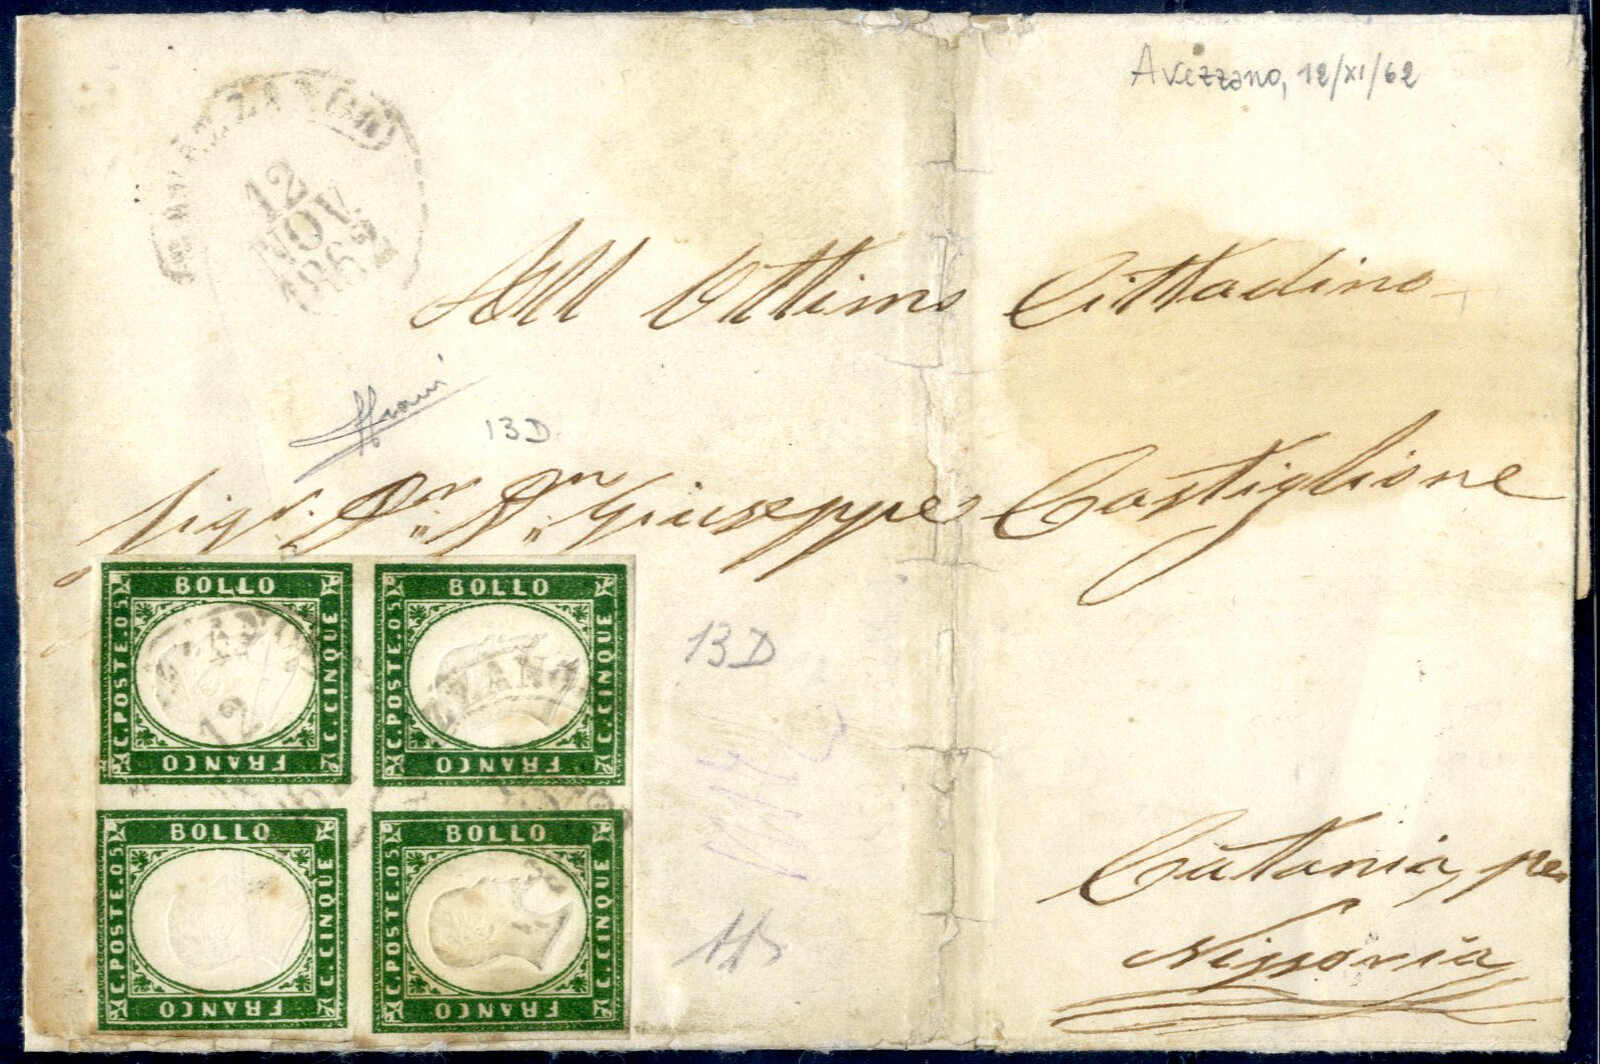 Avezzano, 12/XI/62
AVEZZANO
12
NOV.
1862
All Ottimo Cittadino
13D
Sigr. Dn. Dn. Giuseppe Castiglione
BOLLO
C. POSTE. 05
C. CINQUE
FRANCO
12
BOLLO
C. POSTE. 05
C. CINQUE
FRANCO
ZZANO
13D
BOLLO
C. POSTE. 05
C. CINQUE
FRANCO
BOLLO
C. POSTE. 05
C. CINQUE
FRANCO
Catania, per
Nissoria